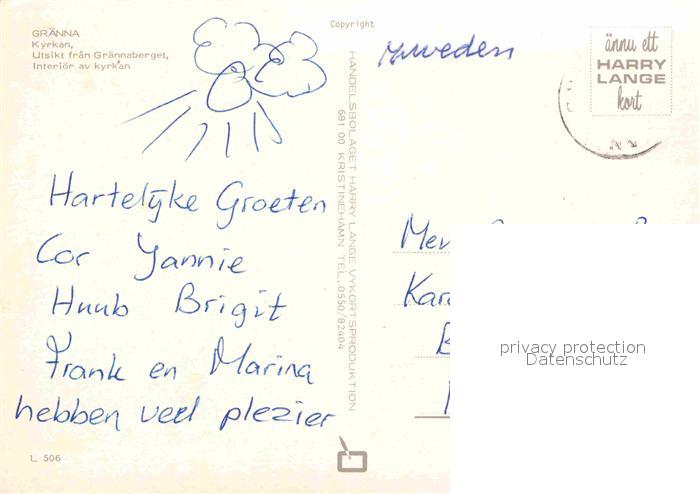 GRÄNNA
Kyrkan,
Utsikt från Grännaberget,
Interiör av kyrkan
Copyright
Zweden
ännu ett
HARRY
LANGE
kort
HANDELSBOLAGET HARRY LANGE, VYKORTSPRODUKTION
681 00 KRISTINEHAMN TEL. 0550/82404
Hartelijke Groeten
Cor Yannie
Huub Brigit
Frank en Marina
hebben veel plezier
Mev
Kar
privacy protection
Datenschutz
L 506